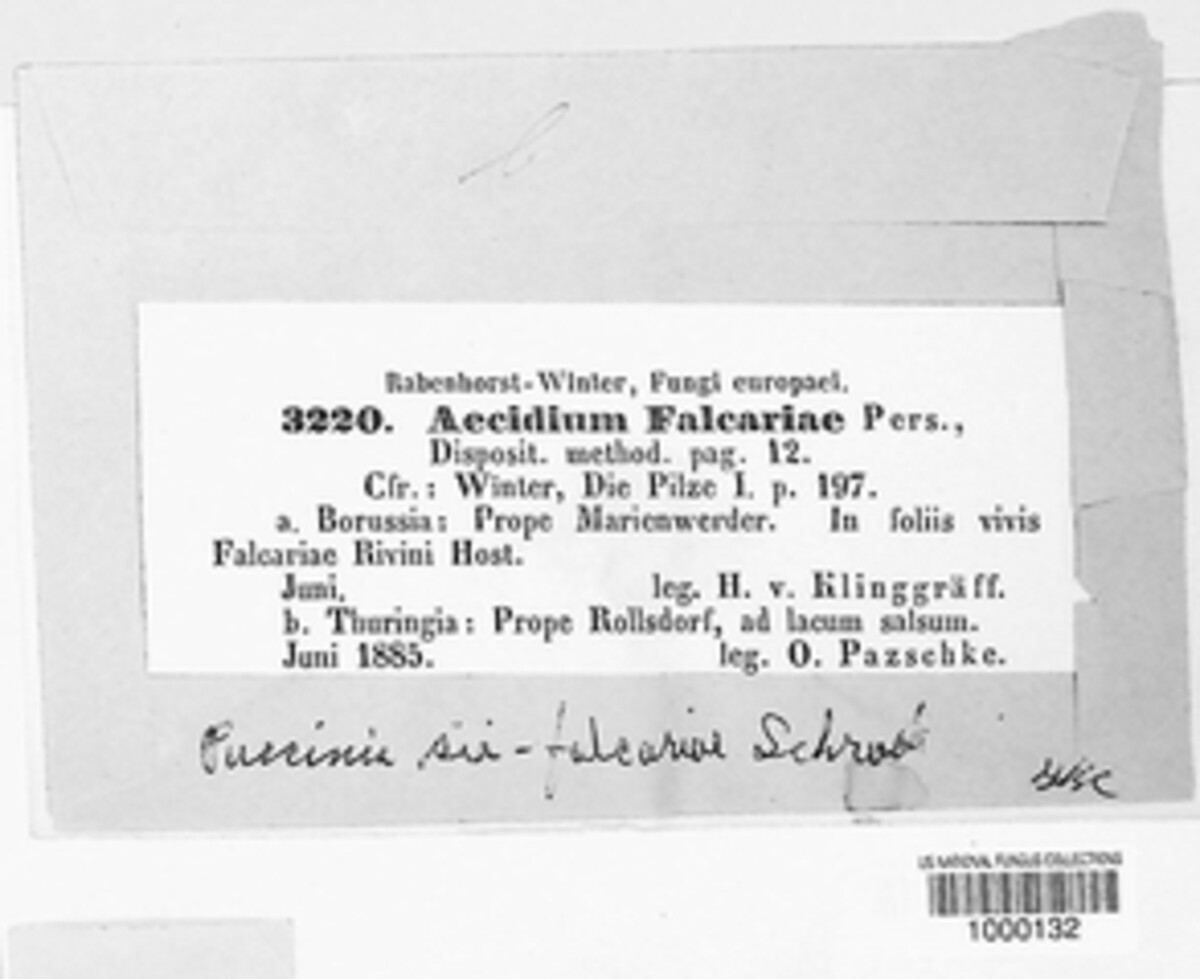 Rabenhorst-Winter, Fungi europaei.
3220. Aecidium Falcariae Pers.,
Disposit. method. pag. 12.
Cfr.: Winter, Die Pilze I. p. 197.
a. Borussia: Prope Marienwerder. In foliis vivis
Falcariae Rivini Host.
Juni. leg. H. v. Klinggräff.
b. Thuringia: Prope Rollsdorf, ad lacum salsum.
Juni 1885. leg. O. Pazschke.
Puccinia sii-falcariae
US NATIONAL FUNGUS COLLECTIONS
1000132